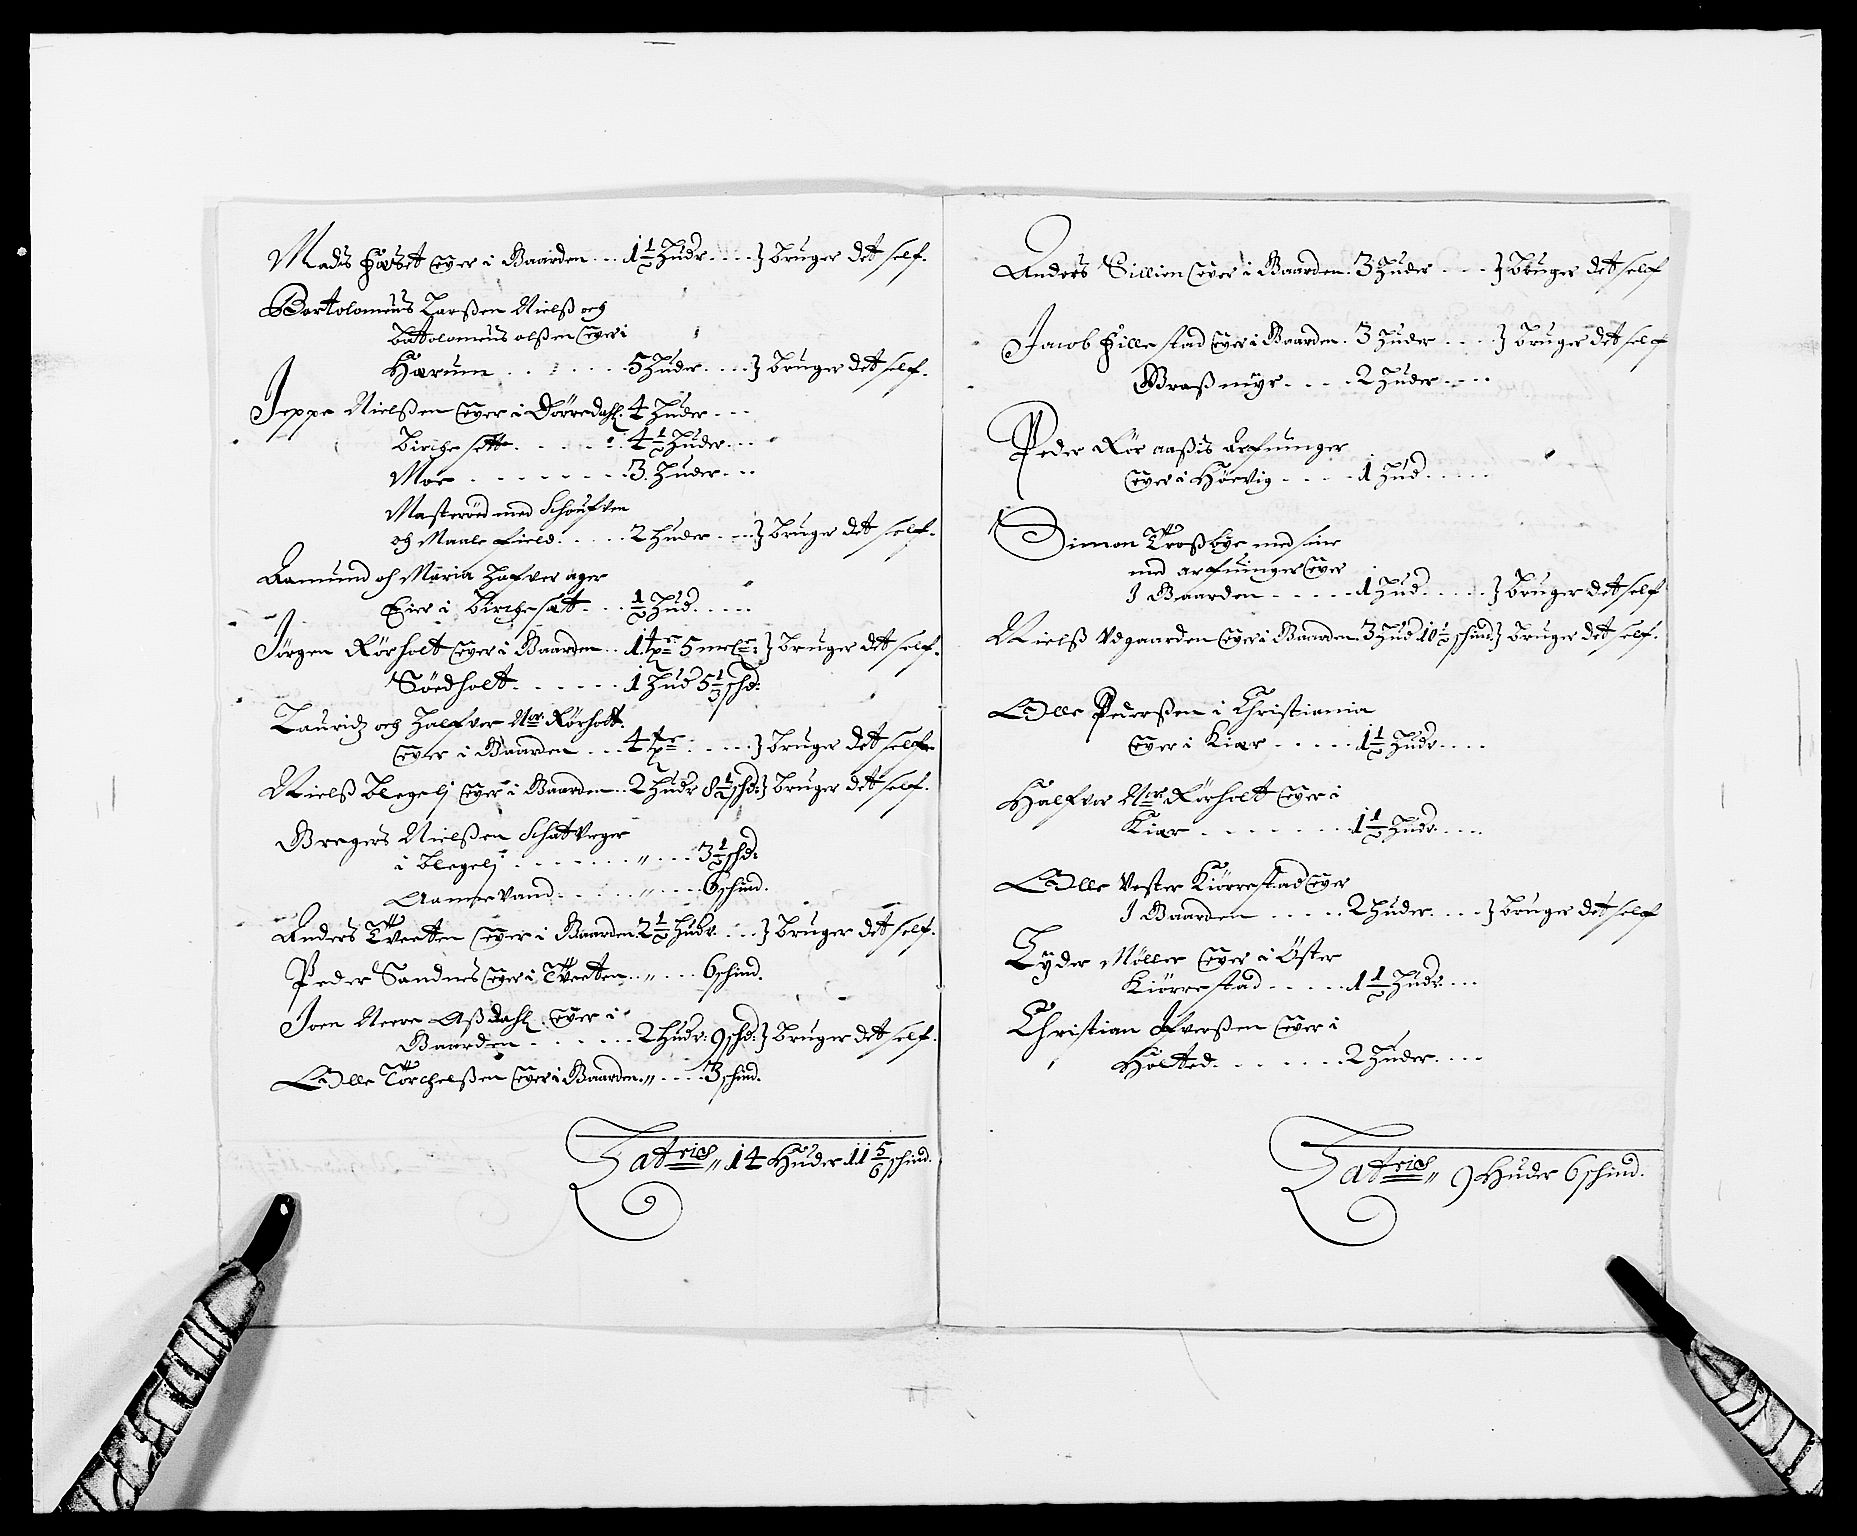 Mads Haset eyer i Gaarden ... 1 1/2 Hudr .... } bruger det self.
Bartolomeus Larßen Nielß och
batolomeus olßen eyer i
Harum . . . . . . . 5 Huder .... } bruger det self.
Jeppe Nielßen eyer i Dørredahl. 4 Huder ...
Birche sette . . . . . . 4 1/2 Huder ...
Moe . . . . . . . . 3 Huder ...
Masterød med Schoufven
och Maale field . . . . . 2 Huder ... } bruger det self.
Aamund och Maria Hafver ager
Eier i Birchesæt ... 1/2 Hud .....
Jørgen Rørholt eyer i Gaarden .. 1 tpe 5 mrche: } bruger det self.
Søedholt . . . . . . 1 Hud 5 1/3 schd:
Lauridz och Halfver Nor Rørholt
eyer i Gaarden ... 4 tpe ..... } bruger det self.
Nielß blegeli eyer i Gaarden .. 2 Hudr 8 1/2 schd: } bruger det self.
Gregers Nielßen Schatveger
i blegeli . . . . . . . „ ... 3 1/2 schd:
Aamevand . . . . . „ .... 6 schind.
Anders Tveetten eyer i Gaarden 2 1/2 Hudr. ... } bruger det self.
Peder Sandnes eyer i Tveetten .. „ ... 6 schind.
Joen Neere Aßdahl eyer i
Gaarden . . . . . . 2 Hudr: 9 schd: } bruger det self.
Olle Torchelßen eyer i Gaarden. „ .... 3 schind.
Latris „ 14 Huder 11 5/6 schind.
Anders Sillien eyer i Gaarden . 3 Huder .... } bruger det self
Jacob Hillestad eyer i Gaarden . 3 Huder .... } bruger det self
Graßmyr . . . . . 2 Huder ....
Peder Rør aaßis Arfuinger
eyer i Høevig . . . . . 1 Hud .....
Simon Troßbye med sine
med arfuinger eyer
I Gaarden . . . . . . 1 Hud ..... } bruger det self
Nielß Vdgaarden eyer i Gaarden 3 Hud 10 1/2 schind } bruger det self.
Olle Pederßen i Christiania
eyer i Kiær . . . . . 1 1/2 Hudr ....
Halfvor Nor Rørholt eyer i
Kiær . . . . . . . . 1 1/2 Hudr ....
Olle Vester Kiørrestad eyer
I Gaarden . . . . . 2 Huder .... } bruger det self
Tyder Møller eyer i Øster
Kiørrestad . . . . . 1 1/2 Hudr ...
Christian Ifverßen eyer i
Holted . . . . . . . 2 Huder ....
Latris „ 9 Huder 6 schind.